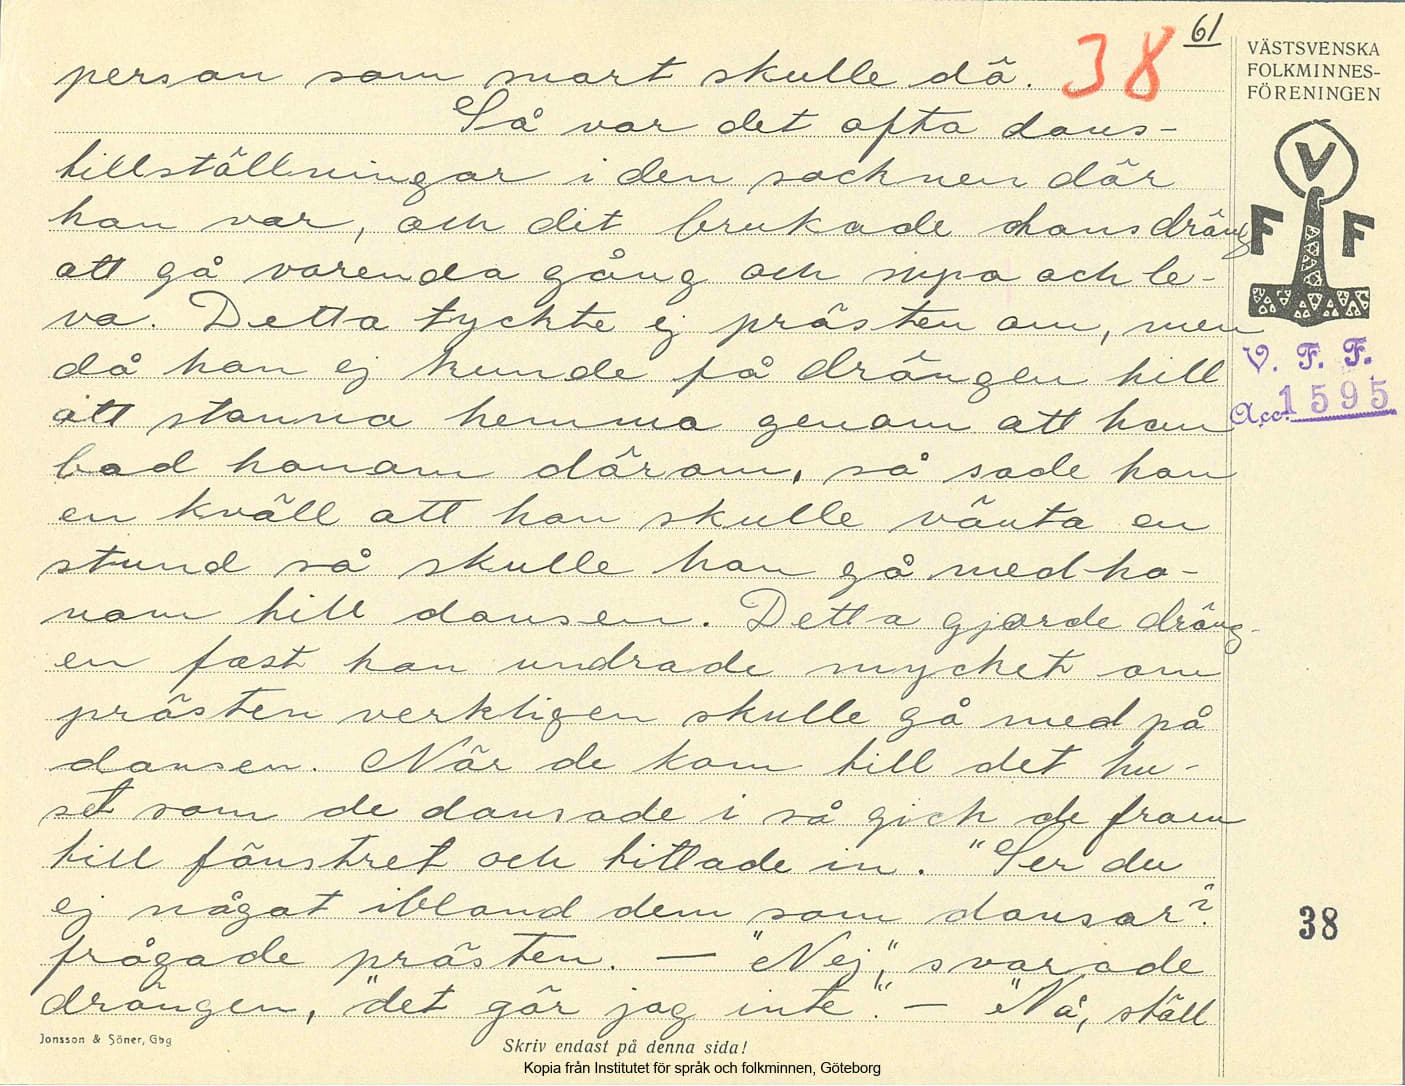 61
38
VÄSTSVENSKA
FOLKMINNES-
FÖRENINGEN
V
F F
V. F. F.
Acc. 1595
person som snart skulle dö.
Så var det ofta dans-
tillställningar i den socknen där
han var, och dit brukade hans dräng
att gå varenda gång och supa och le-
va. Detta tyckte ej prästen om, men
då han ej kunde få drängen till
att stanna hemma genom att han
bad honom därom, så sade han
en kväll att han skulle vänta en
stund så skulle han gå med ho-
nom till dansen. Detta gjorde dräng-
en fast han undrade mycket om
prästen verkligen skulle gå med på
dansen. När de kom till det hu-
set som de dansade i så gick de fram
till fönstret och tittade in. "Ser du
ej något ibland dem som dansar?
frågade prästen. — "Nej", svarade
drängen, "det gör jag inte". — "Nå, ställ
38
Jonsson & Söner, Gbg
Skriv endast på denna sida!
Kopia från Institutet för språk och folkminnen, Göteborg